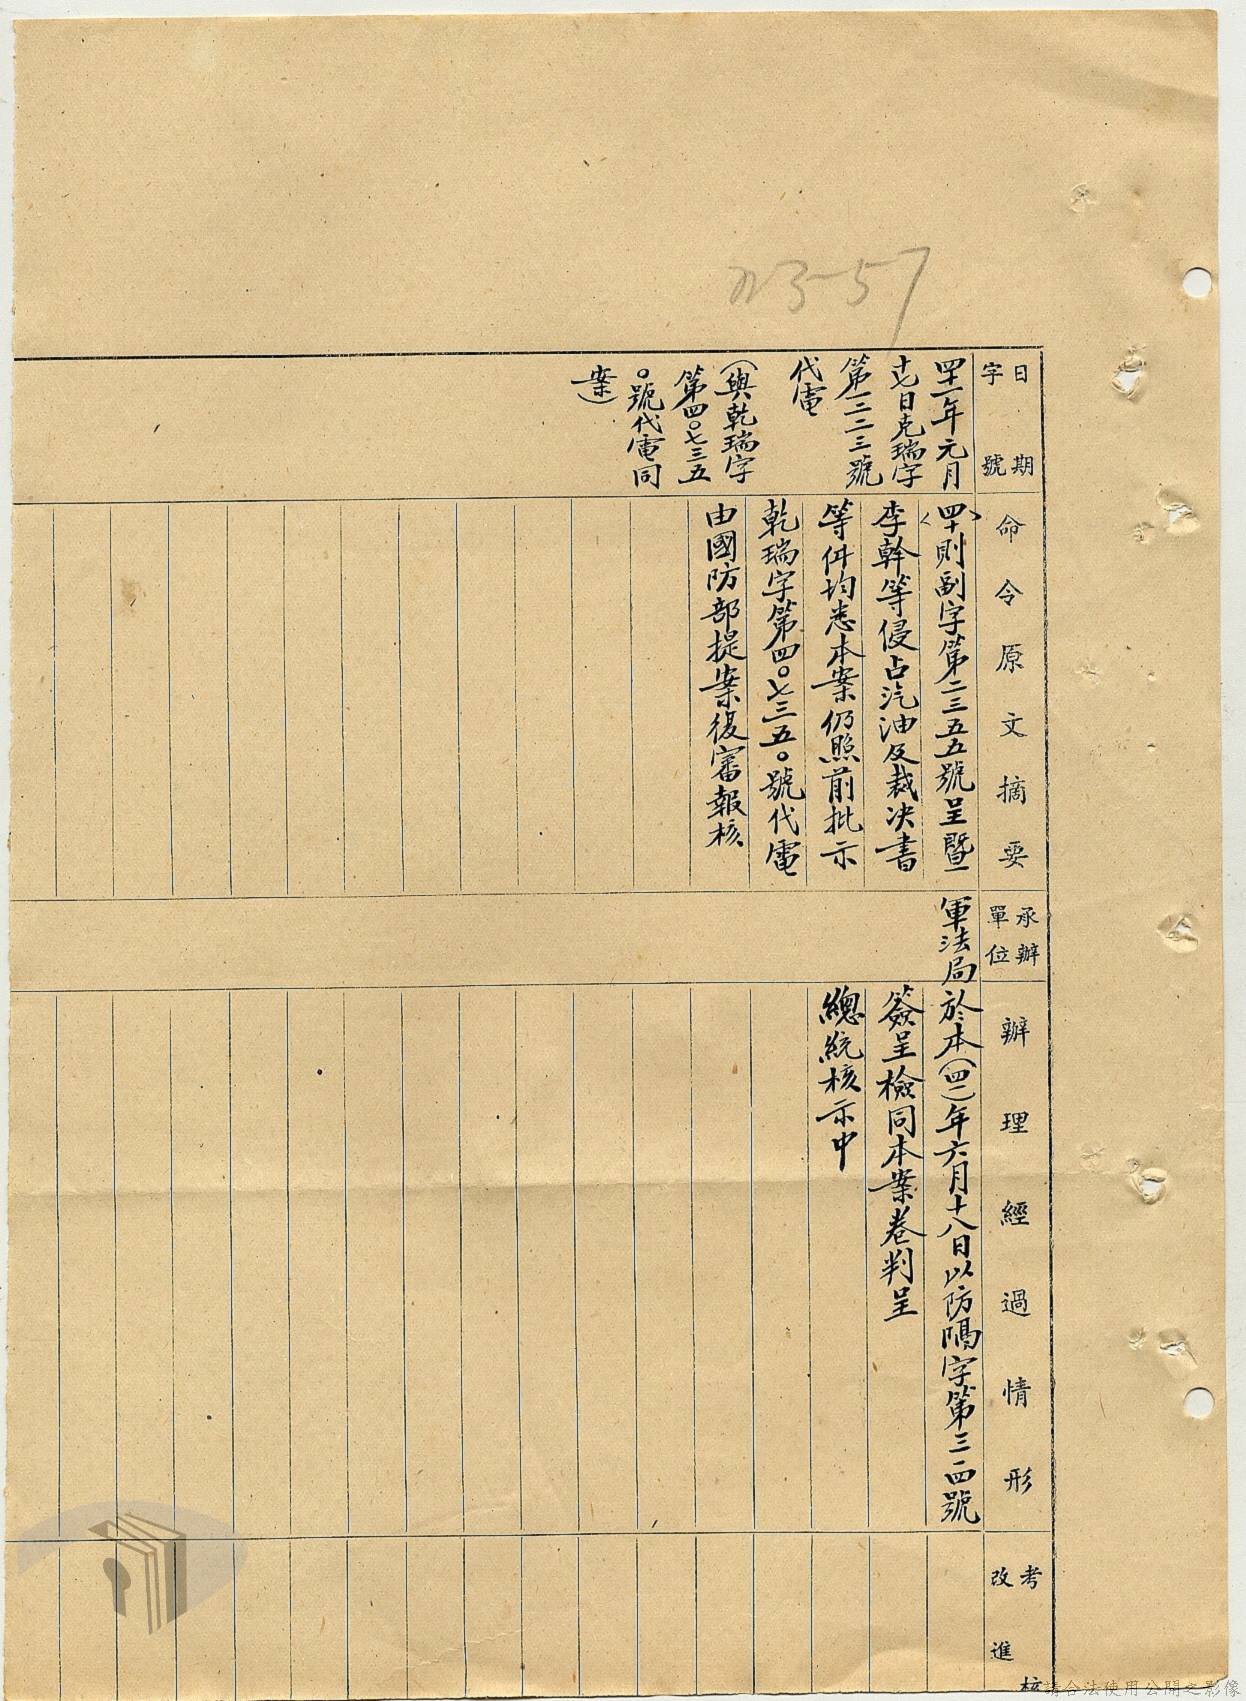 日期
字號
命令原文摘要
承辦
單位
辦理經過情形
考核
改進
四十一年元月
十七日克瑞字
第一二二三號
代電
(與乾瑞字
第四〇七三五
〇號代電同
案)
〈四十〉則副字第二三五五號呈暨
李幹等侵占汽油及裁决書
等件均悉本案仍照前批示
乾瑞字第四〇七三五〇號代電
由國防部提案復審報核
軍法局
於本(四一)年六月十八日以防隅字第三一四號
簽呈檢同本案卷判呈
總統核示中
請合法使用公開之影像